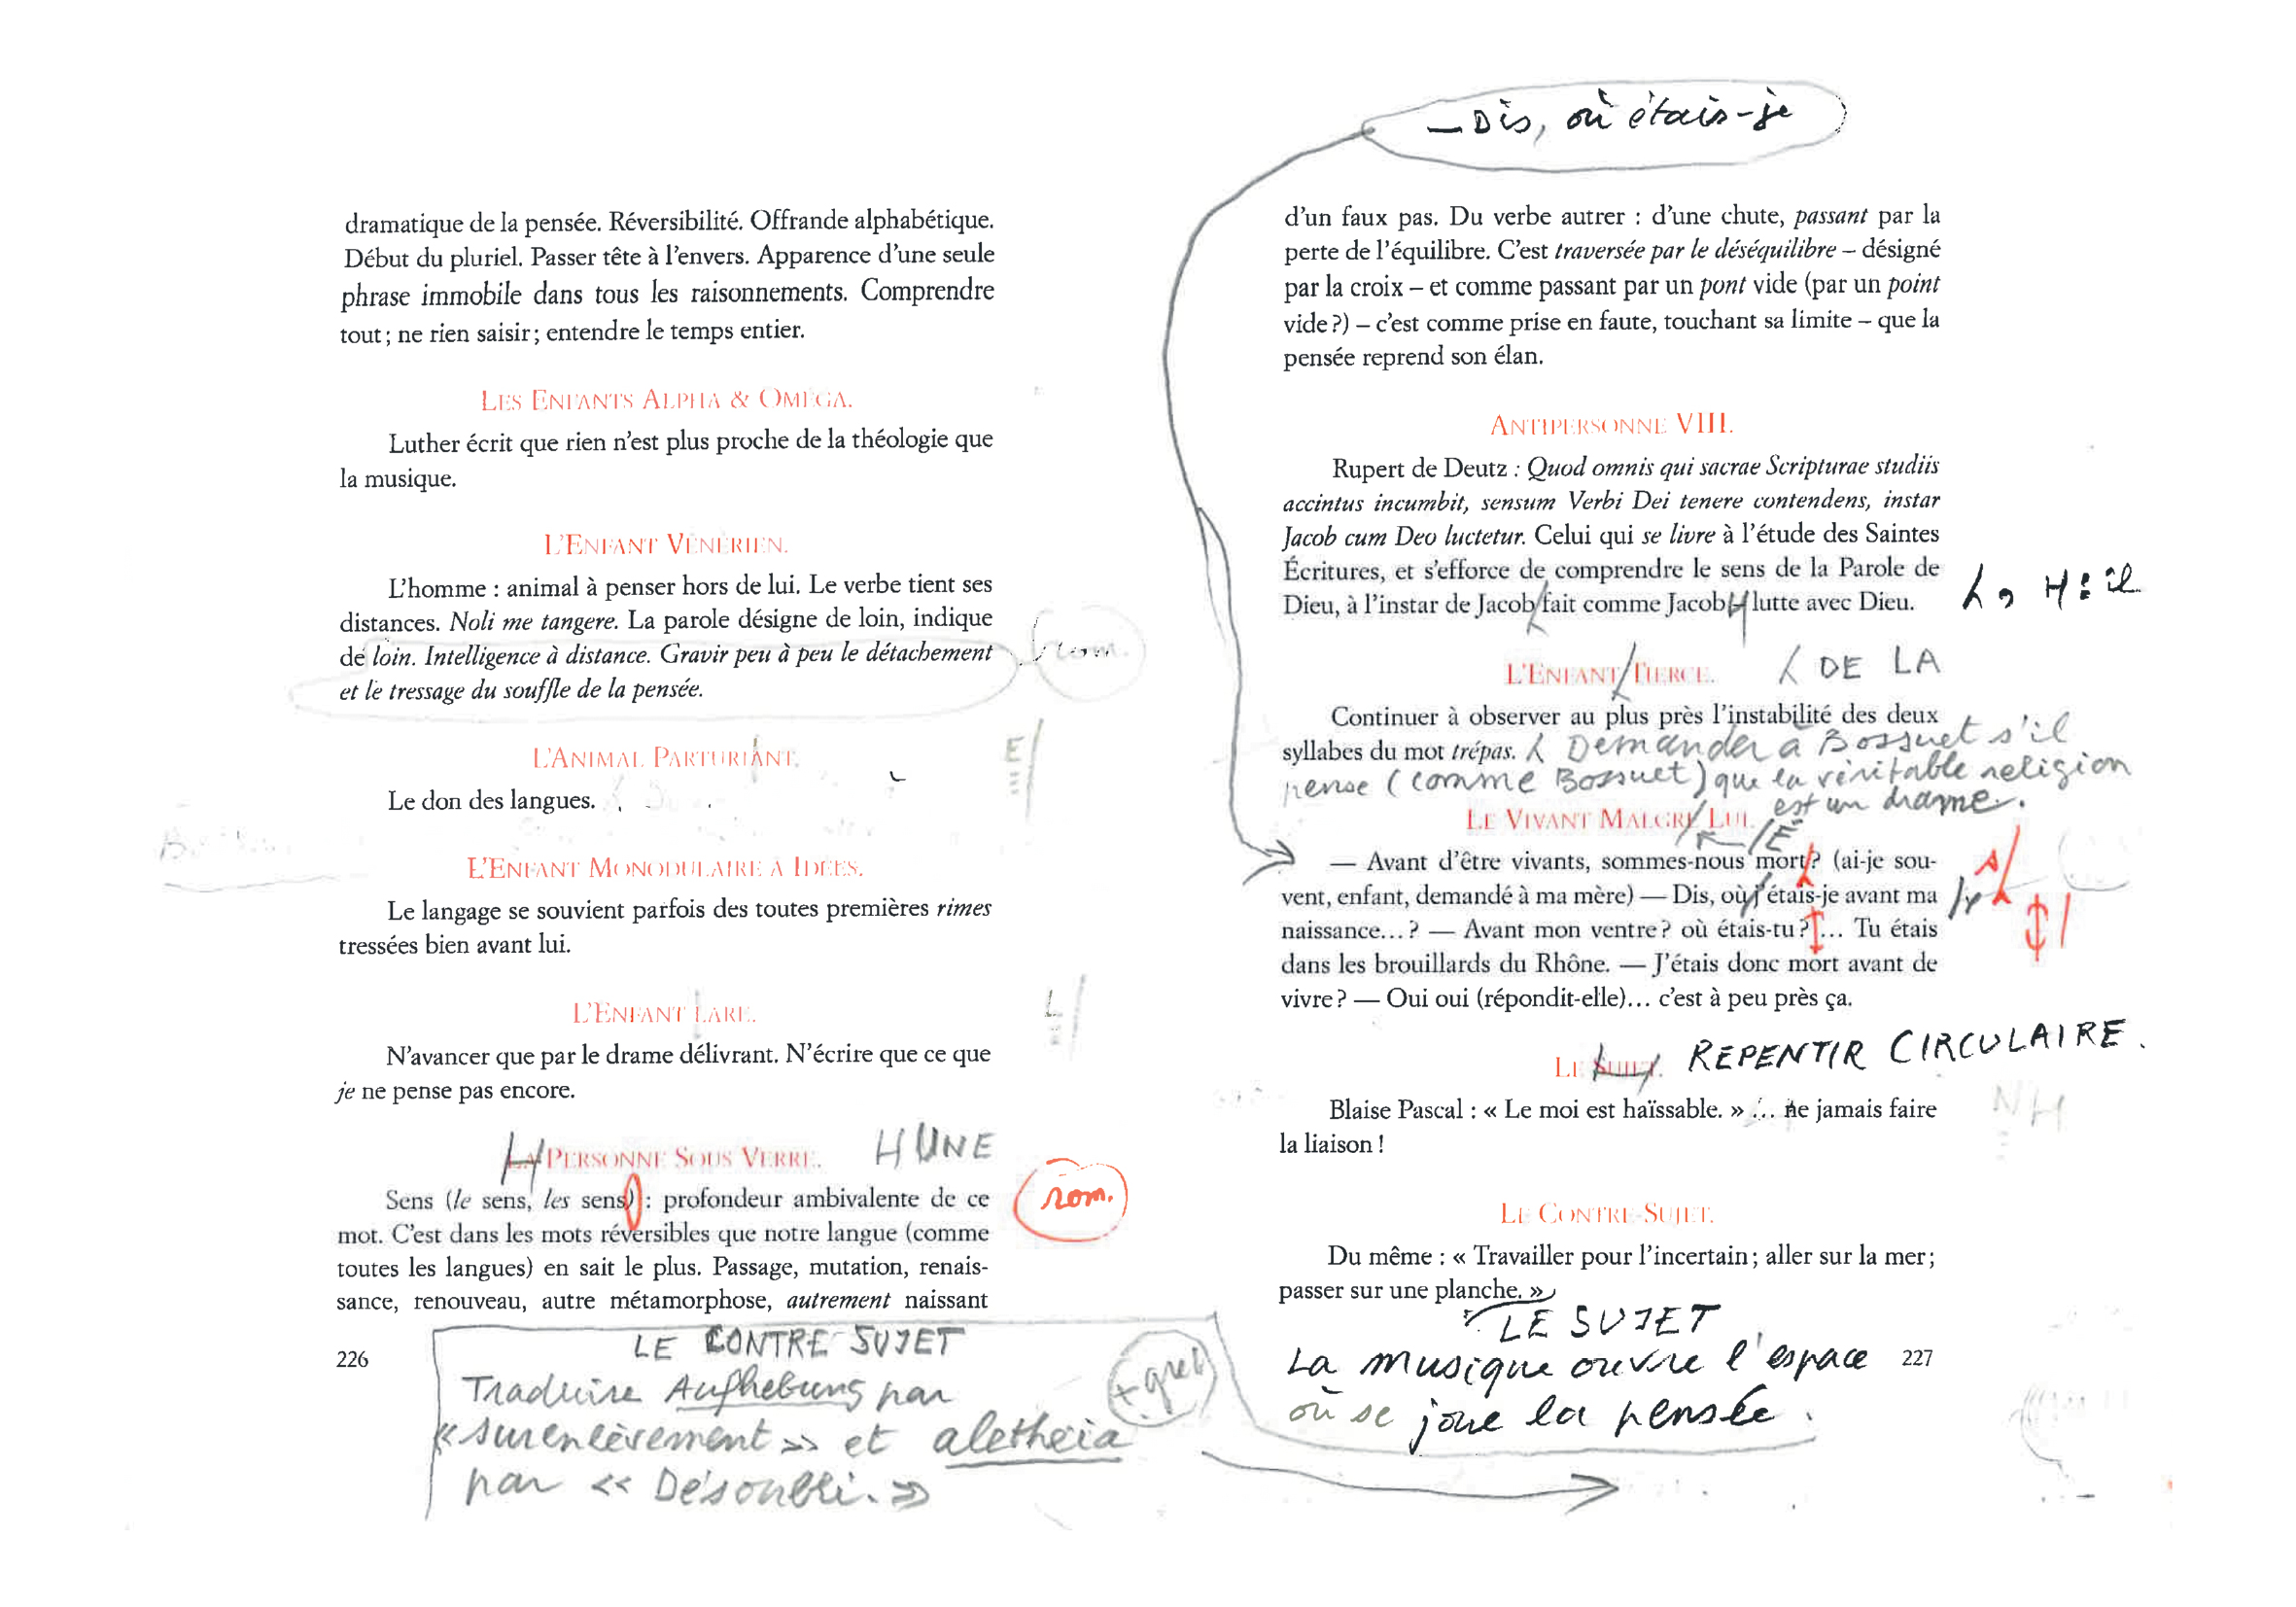 dramatique de la pensée. Réversibilité. Offrande alphabétique.
Début du pluriel. Passer tête à l'envers. Apparence d'une seule
phrase immobile dans tous les raisonnements. Comprendre
tout ; ne rien saisir ; entendre le temps entier.
LES ENFANTS ALPHA & OMÉGA.
Luther écrit que rien n'est plus proche de la théologie que
la musique.
L'ENFANT VÉNÉRIEN.
L'homme : animal à penser hors de lui. Le verbe tient ses
distances. Noli me tangere. La parole désigne de loin, indique
de loin. Intelligence à distance. Gravir peu à peu le détachement
et le tressage du souffle de la pensée.
rom.
L'ANIMAL PARTURIANT.
E
Le don des langues.
L'ENFANT MONODULAIRE À IDÉES.
Le langage se souvient parfois des toutes premières rimes
tressées bien avant lui.
L'ENFANT LARE.
L
N'avancer que par le drame délivrant. N'écrire que ce que
je ne pense pas encore.
LA PERSONNE SOUS VERRE. UNE
Sens (le sens, les sens) : profondeur ambivalente de ce
rom.
mot. C'est dans les mots réversibles que notre langue (comme
toutes les langues) en sait le plus. Passage, mutation, renais-
sance, renouveau, autre métamorphose, autrement naissant
226
LE CONTRE SUJET
Traduire Aufhebung par
« surenlèvement » et aletheia
par « Désoubli. »
— Dis, où étais-je
d'un faux pas. Du verbe autrer : d'une chute, passant par la
perte de l'équilibre. C'est traversée par le déséquilibre – désigné
par la croix – et comme passant par un pont vide (par un point
vide ?) – c'est comme prise en faute, touchant sa limite – que la
pensée reprend son élan.
ANTIPERSONNE VIII.
Rupert de Deutz : Quod omnis qui sacrae Scripturae studiis
accintus incumbit, sensum Verbi Dei tenere contendens, instar
Jacob cum Deo luctetur. Celui qui se livre à l'étude des Saintes
Écritures, et s'efforce de comprendre le sens de la Parole de
Dieu, à l'instar de Jacob fait comme Jacob lutte avec Dieu.
, : il
L'ENFANT TIERCE. DE LA
Continuer à observer au plus près l'instabilité des deux
syllabes du mot trépas. Demander à Bossuet s'il
pense (comme Bossuet) que la véritable religion
est un drame.
LE VIVANT MALGRÉ LUI. É
— Avant d'être vivants, sommes-nous mort ? (ai-je sou-
vent, enfant, demandé à ma mère) — Dis, où j'étais-je avant ma
naissance... ? — Avant mon ventre ? où étais-tu ? ... Tu étais
dans les brouillards du Rhône. — J'étais donc mort avant de
vivre ? — Oui oui (répondit-elle)... c'est à peu près ça.
LE SUJET. REPENTIR CIRCULAIRE.
Blaise Pascal : « Le moi est haïssable. » ... ne jamais faire
la liaison !
LE CONTRE-SUJET.
Du même : « Travailler pour l'incertain ; aller sur la mer ;
passer sur une planche. »
LE SUJET
La musique ouvre l'espace
où se joue la pensée.
227